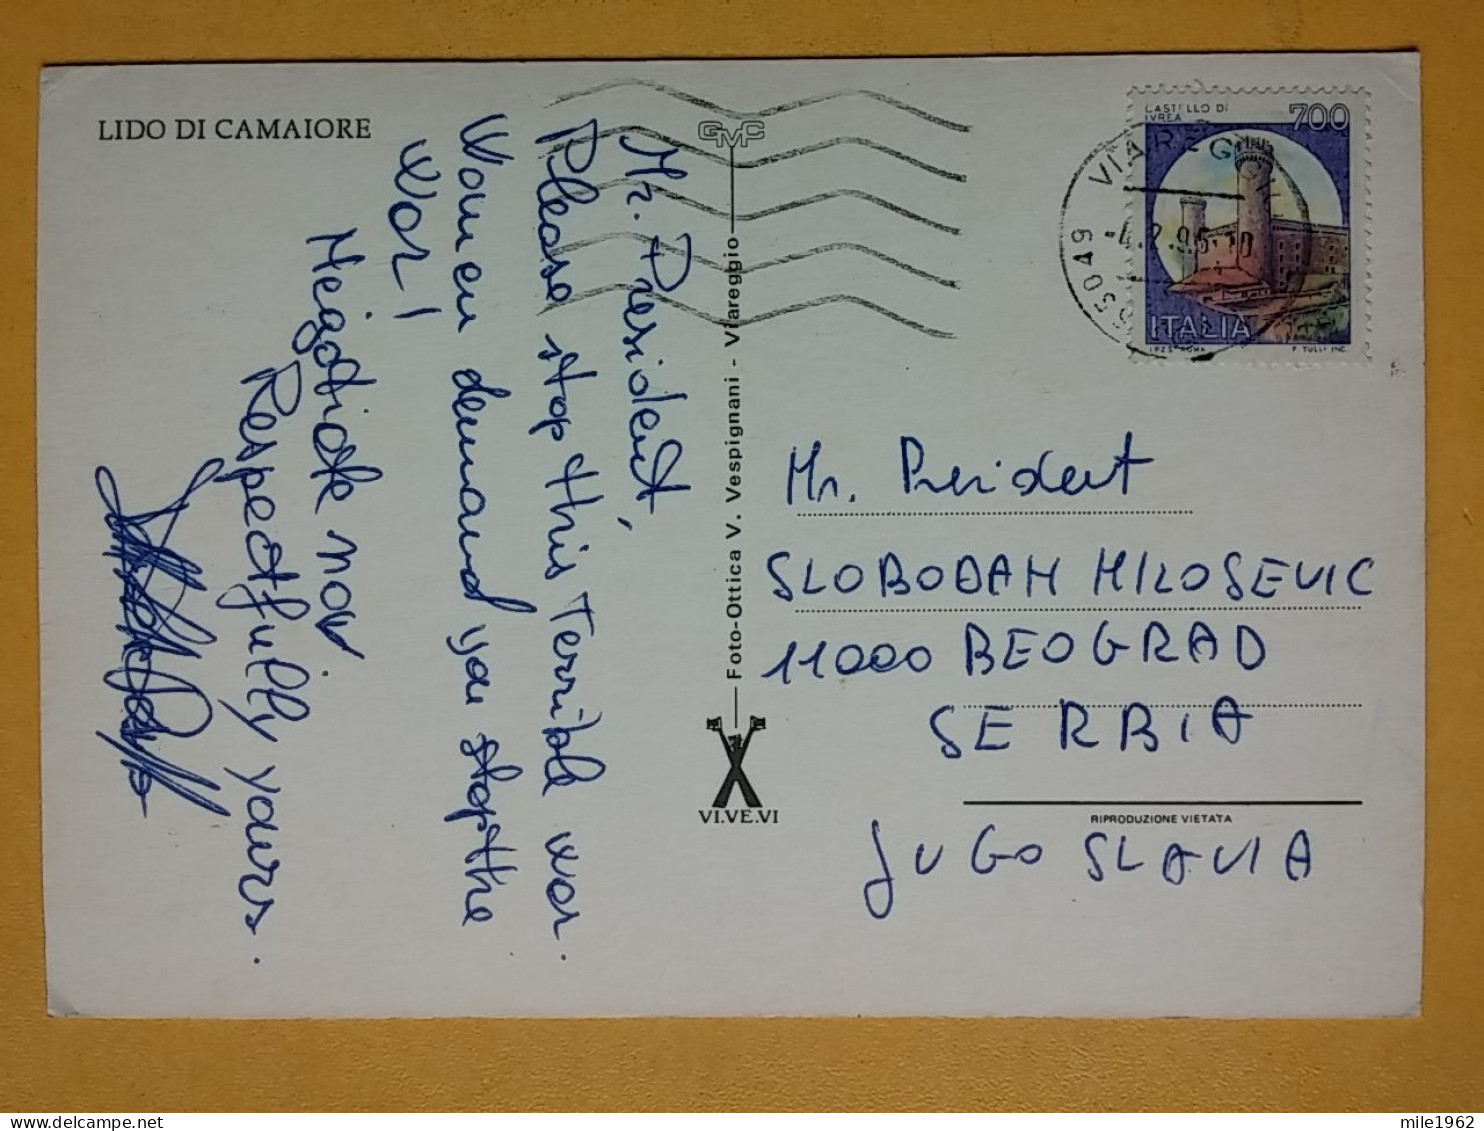 LIDO DI CAMAIORE
Mr. President,
Please stop this Terrible wor.
Women demand you stop the
wor!
Negotiate now
Respectfully yours.
GMC
Foto-Ottica V. Vespignani - Viareggio
VI.VE.VI
CASTELLO DI
IVREA
700
ITALIA
I.P.Z.S. ROMA
P. TULLI INC.
55049 VIAREGGIO
Mr. President
SLOBODAN MILOSEVIC
11000 BEOGRAD
SERBIA
RIPRODUZIONE VIETATA
JUGOSLAVIA
mile1962